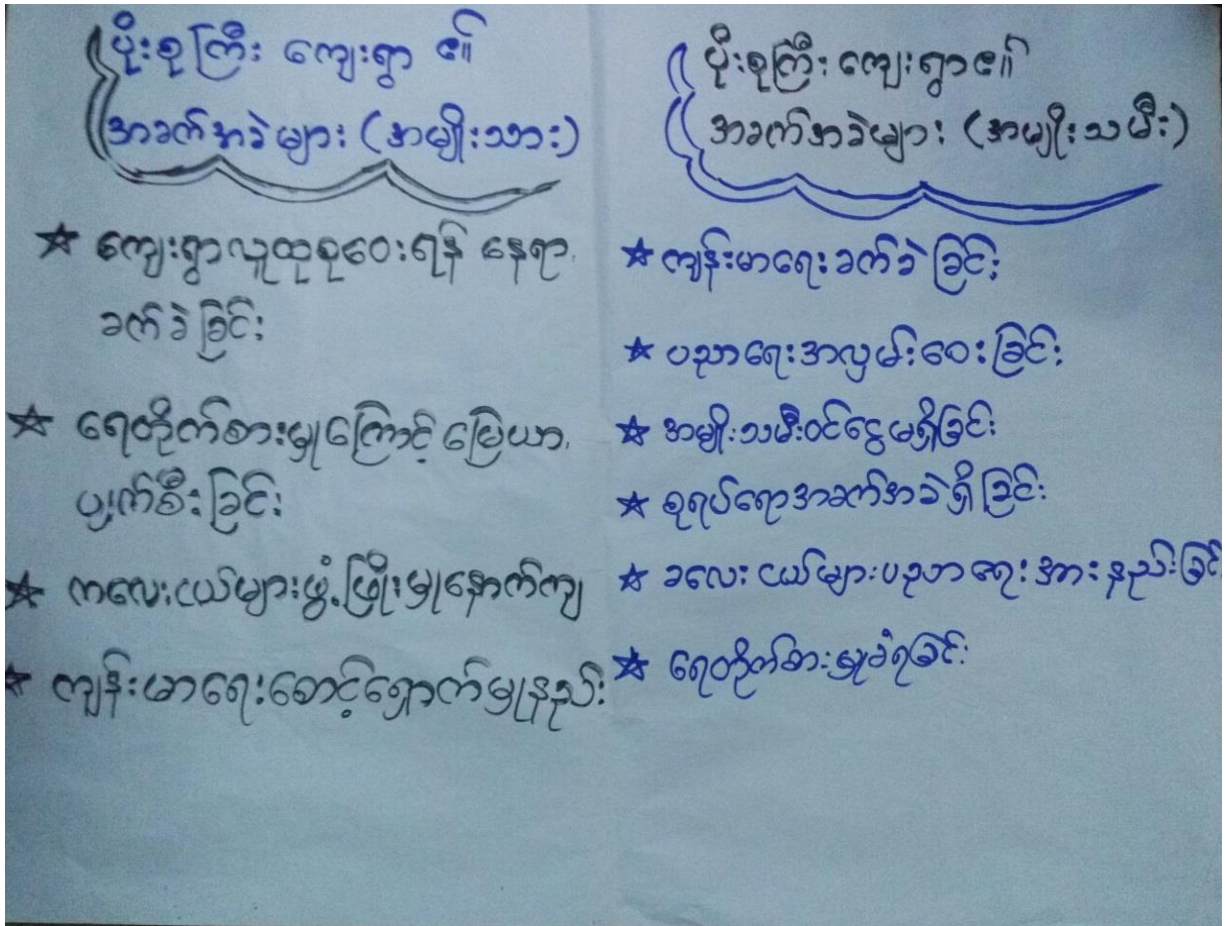 ပိုးစုကြီး ကျေးရွာ ၏
အခက်အခဲများ (အမျိုးသား)
★ ကျေးရွာလူထုစုဝေးရန် နေရာ
ခက်ခဲခြင်း
★ ရေတိုက်စားမှုကြောင့် မြေယာ
ပျက်စီးခြင်း
★ ကလေးငယ်များဖွံ့ဖြိုးမှုနောက်ကျ
★ ကျန်းမာရေးစောင့်ရှောက်မှုနည်း
ပိုးစုကြီး ကျေးရွာ၏
အခက်အခဲများ (အမျိုးသမီး)
★ ကျန်းမာရေးခက်ခဲခြင်း
★ ပညာရေးအလှမ်းဝေးခြင်း
★ အမျိုးသမီးဝင်ငွေမရှိခြင်း
★ စုရပ်ရောအခက်အခဲရှိခြင်း
★ ခလေးငယ်များပညာရေးအားနည်းခြင်
★ ရေတိုက်စားမှုခံရခြင်း